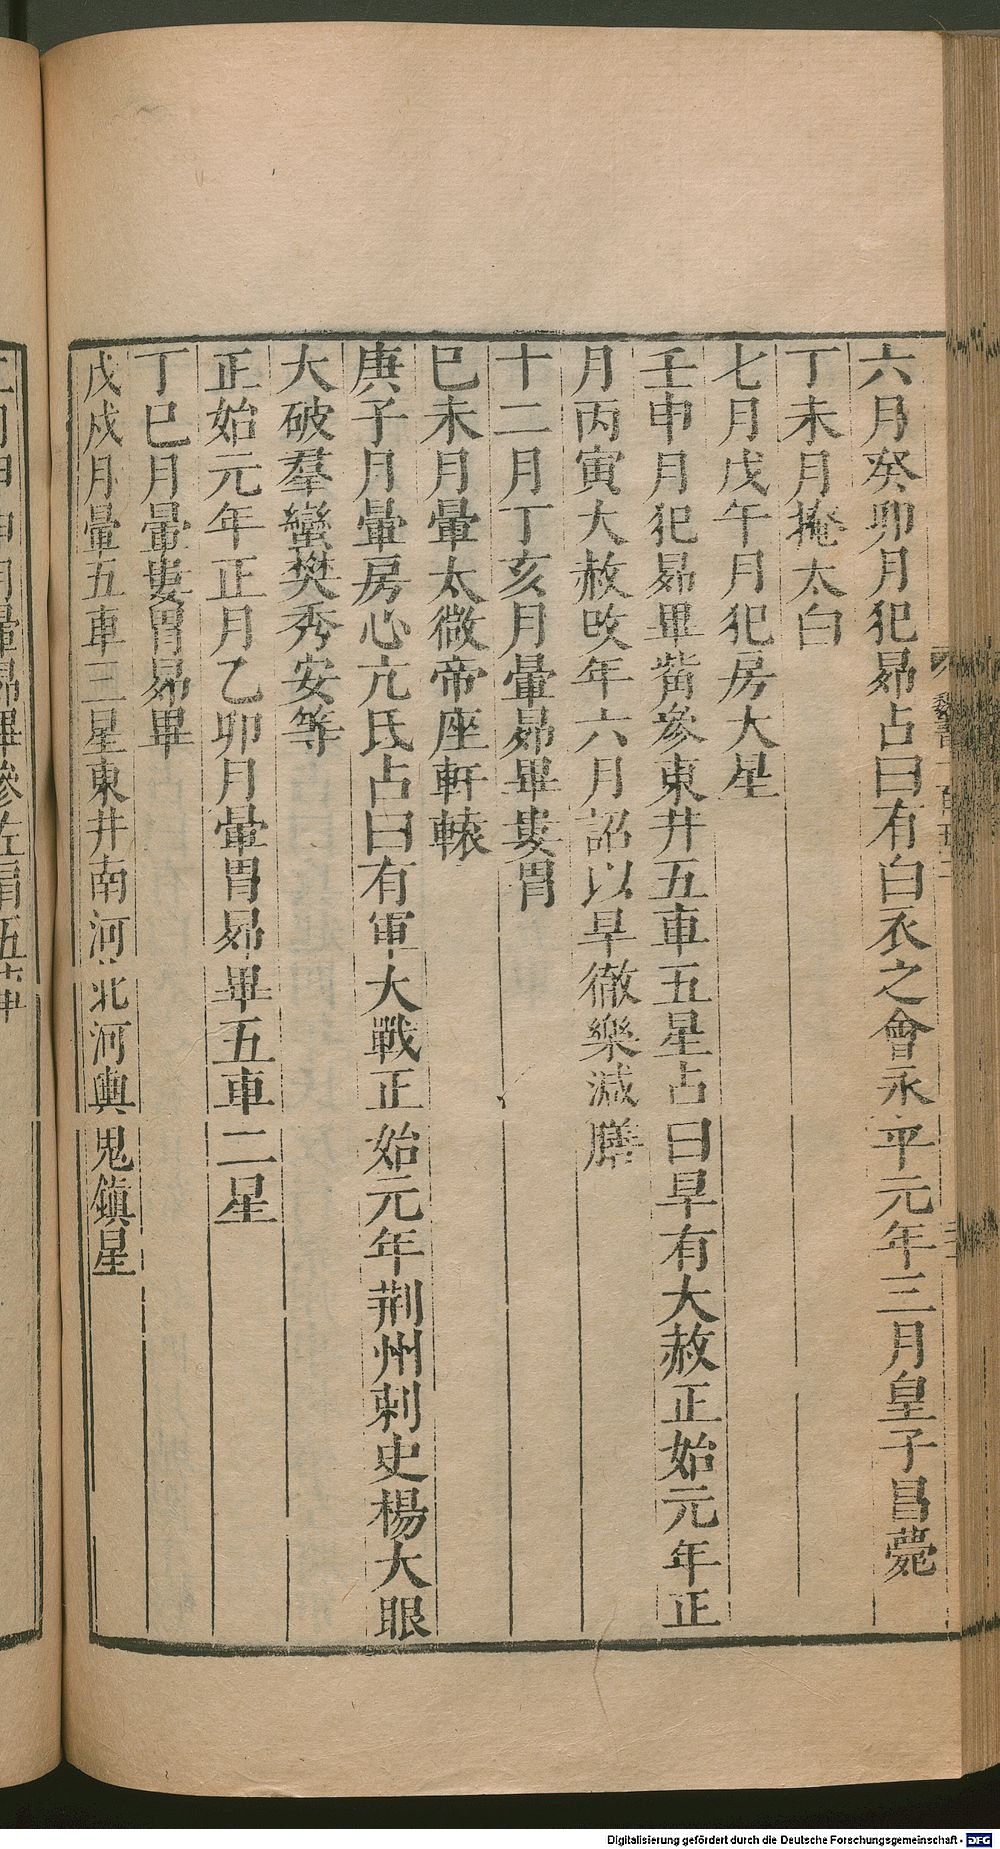 六月癸卯月犯昴占曰有白衣之會永平元年三月皇子昌薨
丁未月掩太白
七月戊午月犯房大星
壬申月犯昴畢觜參東井五車五星占曰旱有大赦正始元年正
月丙寅大赦改年六月詔以旱徹樂減膳
十二月丁亥月暈昴畢婁胃
巳未月暈太微帝座軒轅
庚子月暈房心亢氐占曰有軍大戰正始元年荆州刺史楊大眼
大破羣蠻樊秀安等
正始元年正月乙卯月暈胃昴畢五車二星
丁巳月暈婁胃昴畢
戊戌月暈五車三星東井南河北河輿鬼鎮星
月暈昴畢參左肩五車
Digitalisierung gefördert durch die Deutsche Forschungsgemeinschaft - DFG